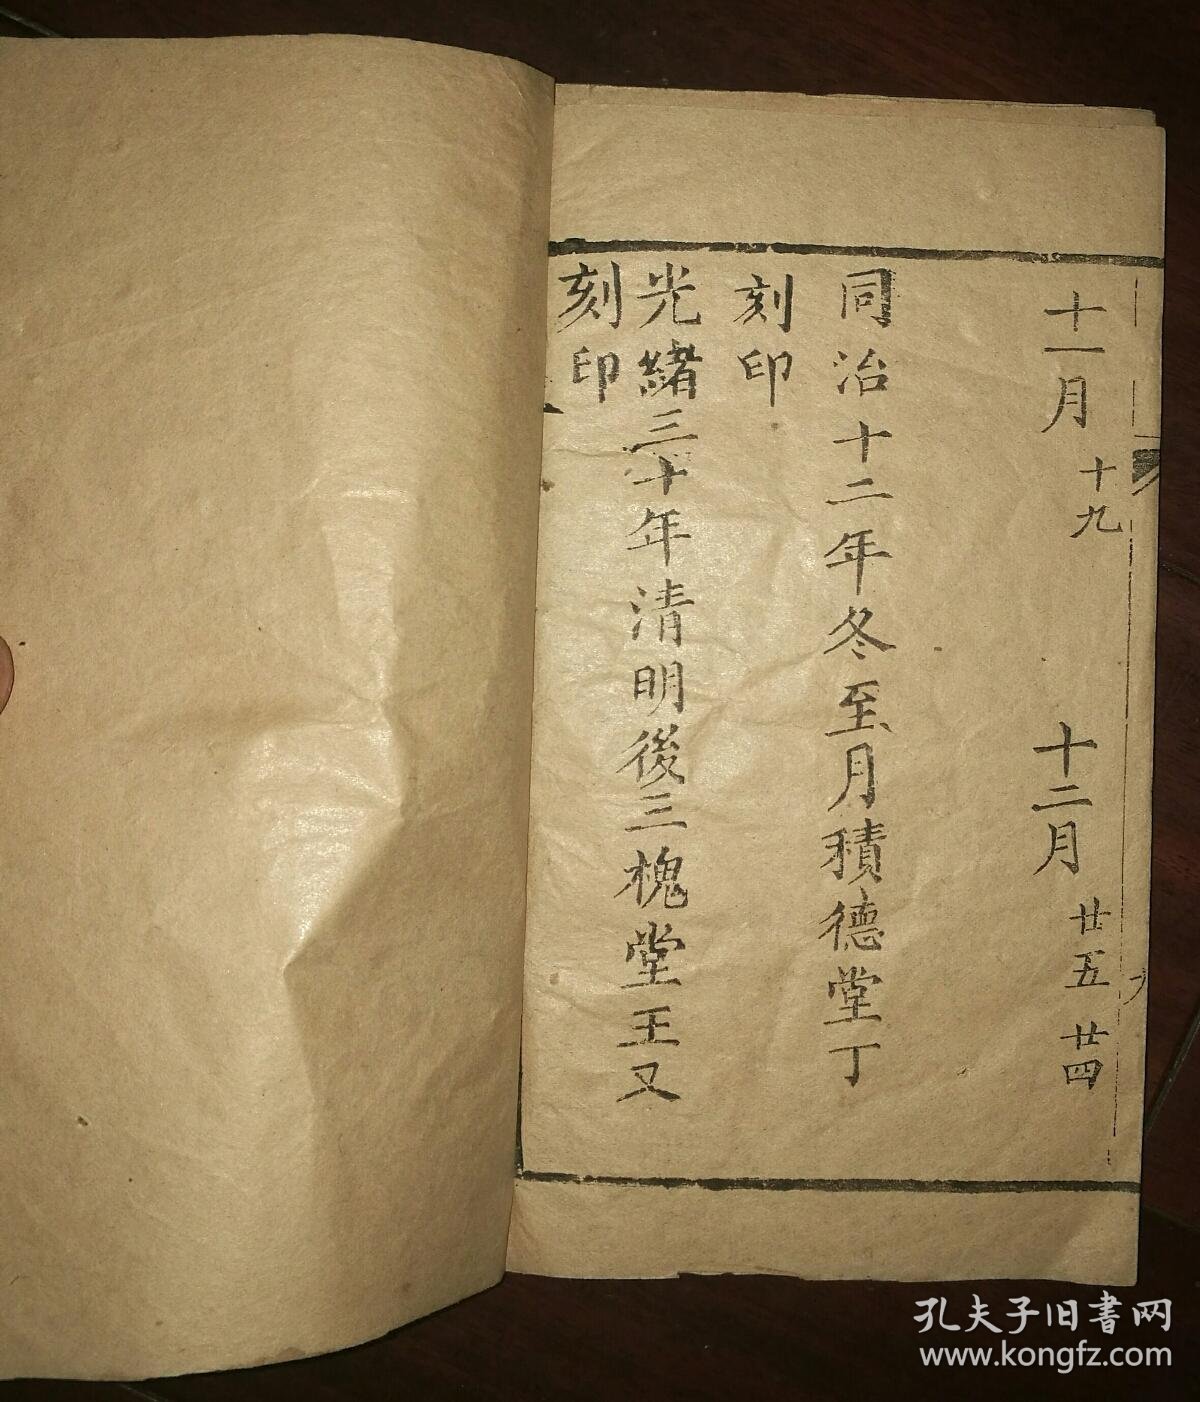 十一月 十九 十二月 廿五 廿四
同治十二年冬至月積德堂丁
刻印
光緒三十年清明後三槐堂王又
刻印
孔夫子旧書网
www.kongfz.com